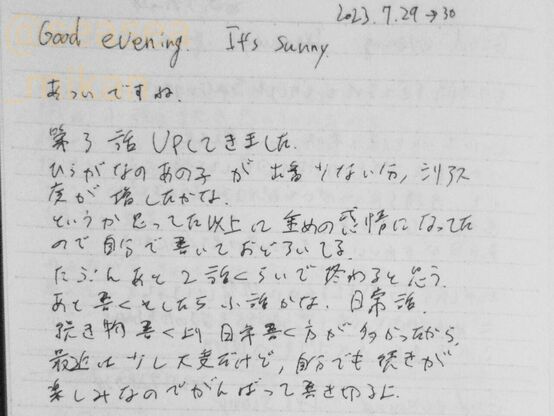 2023.7.29→30
Good evening. It's sunny.
あついですね.
第3話 UPしてきました.
ひらがなのあの子が出番少ない分, シリアス
度が増したかな.
というか思ってた以上に重めの感情になってた
ので自分で書いておどろいてる
たぶんあと2話くらいで終わると思う.
あと書くとしたら小話かな. 日常話.
続き物書くより日常書く方が多かったから.
最近は少し大変だけど, 自分でも続きが
楽しみなのでがんばって書き切るよ.